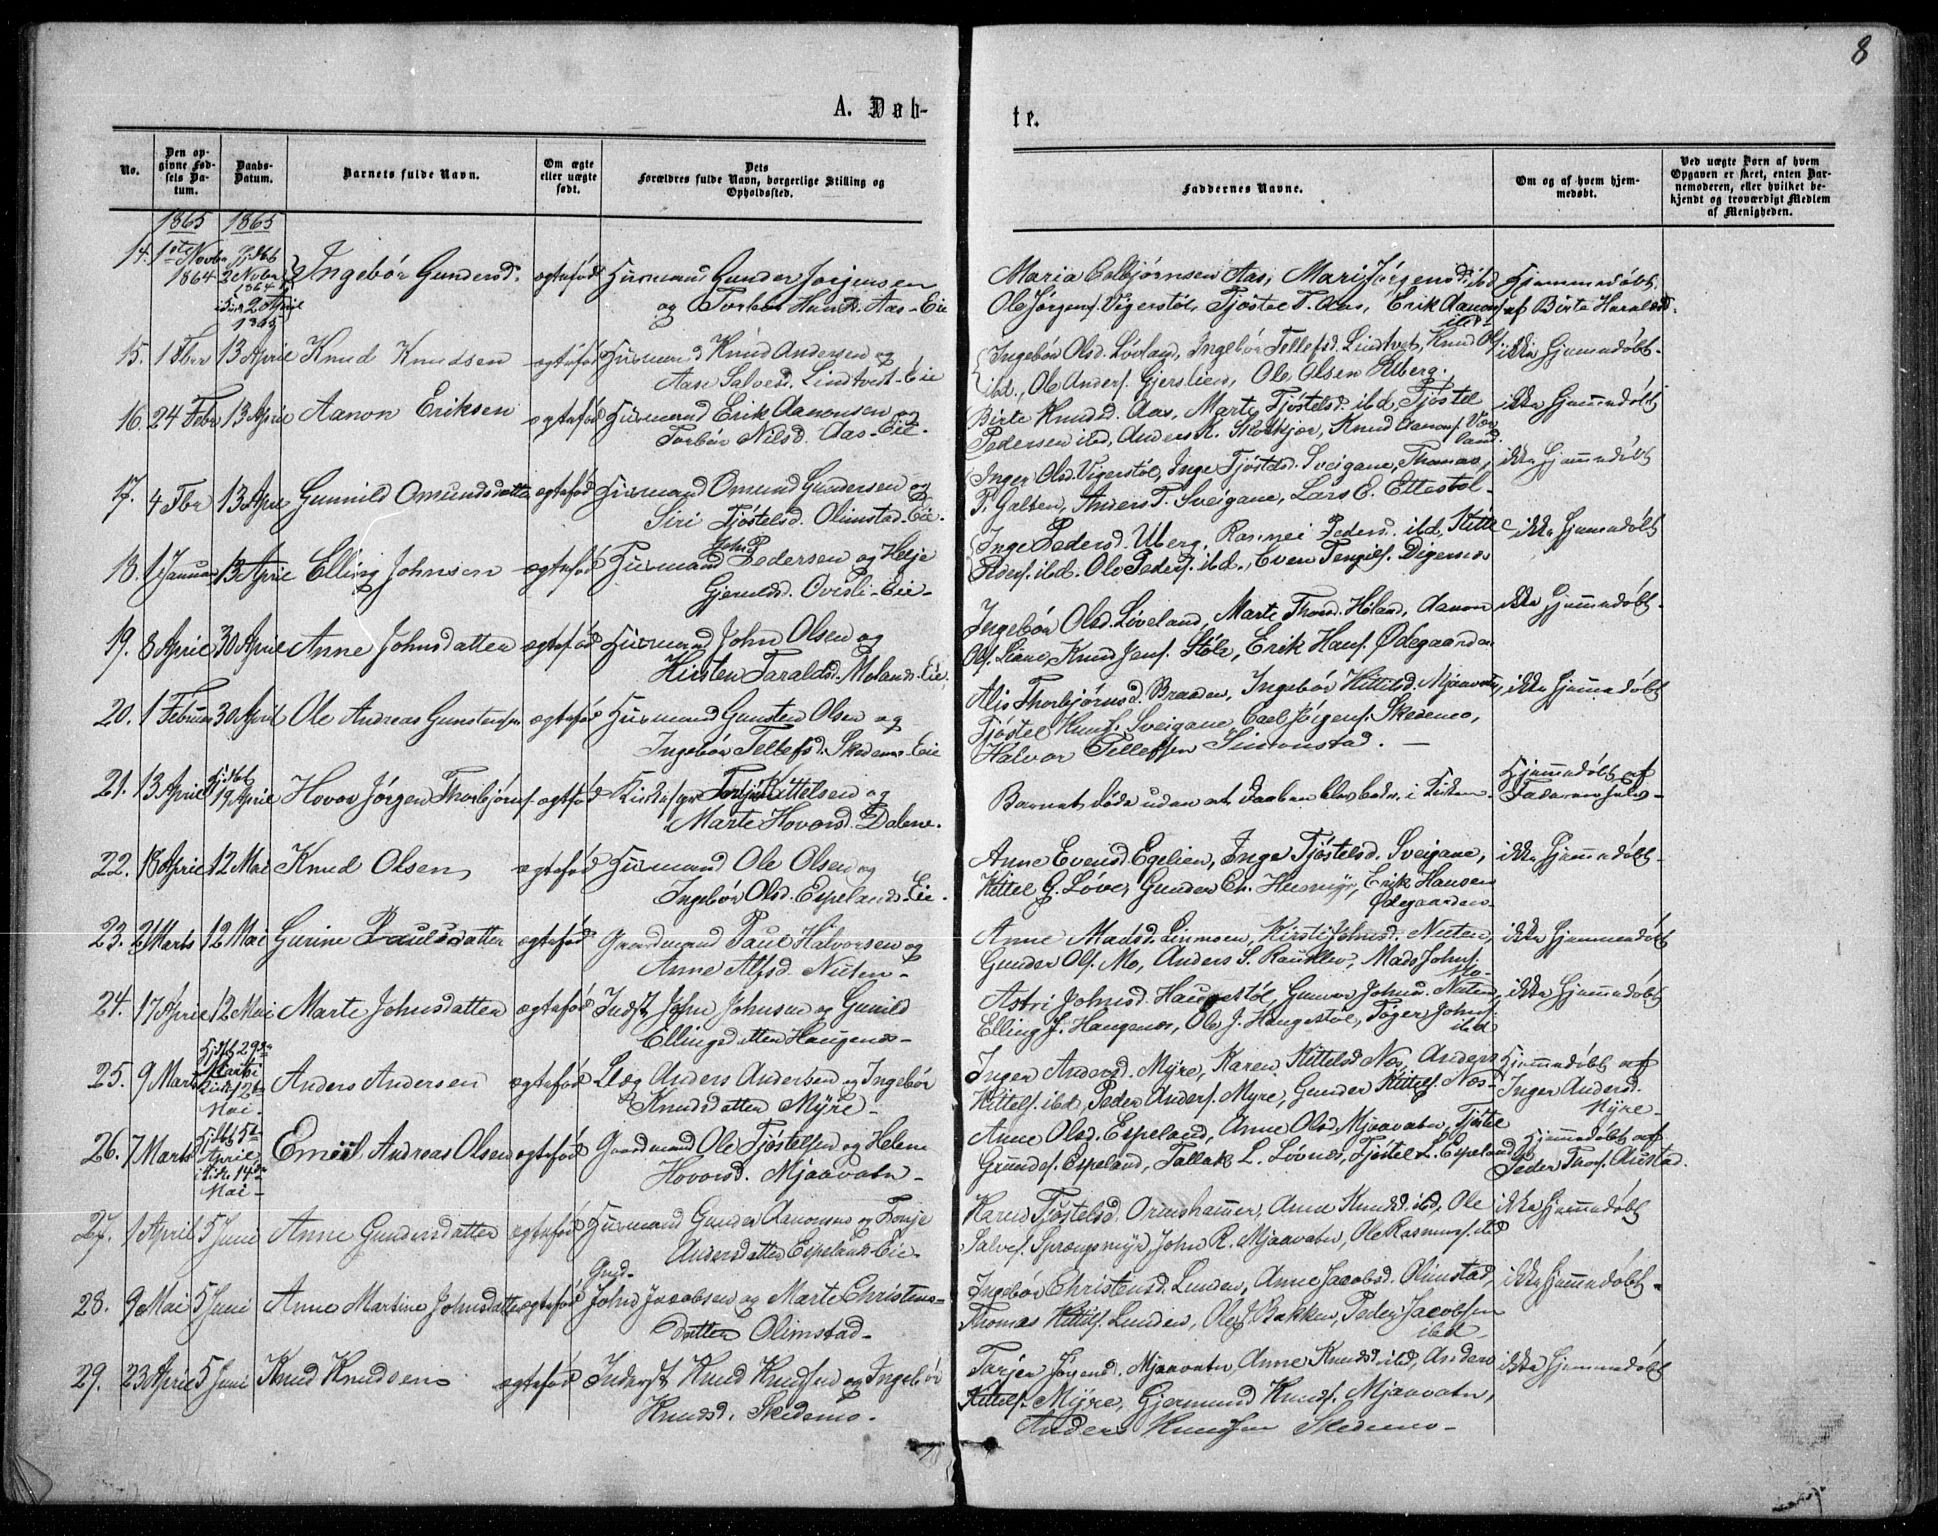 8
A. Døb-
te.
No.
Den op-
givne Fød-
sels Da-
tum.
Daabs-
Datum.
Barnets fulde Navn.
Om ægte
eller uægte
født.
Dets
Forældres fulde Navn, borgerlige Stilling og
Opholdssted.
Faddernes Navne.
Om og af hvem hjem-
medøbt.
Ved uægte Børn af hvem
Opgaven er skeet, enten Bar-
nemoderen, eller hvilket be-
kjendt og troværdigt Medlem
af Menigheden.
1865 1865
14. 1ste Novbr 1864 Hjdbt 2 Novbr 1864 i Kirk 2 April 1865 Ingebør Gundersd. egtefød Husmand Gunder Jørgensen
og Torbør Aas-Eie
Maria Aas, Mari Jørgensd. ibd
Ole Jørgens. Vigerstøl, Tjøstel T. Aas, Erik Aanons. ibd-
Hjemmedøbt
af Birte Haraldsd.
15. 1 Fbr 13 April Knud Knudsen egtefød Husmand Knud Andersen og
Aase Salvesd. Lindtveit-Eie
Ingebør Olsd. Lövland, Ingebør Tellefsd. Lindtvet, Knud Ols.
ibd., Ole Anders. Gjerslien, Ole Olsen Uberg.
ikke hjemmedøbt-
16. 24 Febr 13 April Aanon Eriksen egtefød Husmand Erik Aanonsen og
Torbør Nilsd. Aas-Eie-
Birte Knudsd. Aas, Marte Tjøstelsd. ibd, Tjøstel
Pedersen ibd, Anders K. Knud Aanons.
ikke hjemmedøbt
17. 4 Fbr 13 April Gunnild Omundsdatter egtefød Husmand Omund Gundersen og
Siri Tjøstelsd. Olimstad-Eie-
Inger Olsd. Vigerstøl, Inge Tjøstelsd. Sveigane, Thomas
P. Galten, Anders T. Sveigane, Lars E. Ettestøl-
ikke hjemmedøbt
18. 1 Januar 13 April Elling Johnsen egtefød Husmand John Pedersen og Helje
Gjeruldsd. Ovesli-Eie-
Inge Pedersd. Uberg, Pedersd. ibd, Kittel
Peders. ibd. Ole Peders. ibd., Even Digernes
ikke hjemmedøbt
19. 8 April 30 April Anne Johnsdatter egtefød Husmand John Olsen og
Kirsten Taraldsd. Molands-Eie,
Ingebør Olsd. Løveland, Marte Thorsd. Høland, Aanon
Ols. Liane, Knud Jens. Støle, Erik Hans. Ødegaarden
ikke hjemmedøbt-
20. 1 Februar 30 April Ole Andreas Gunstens. egtefød Husmand Gunsten Olsen og
Ingebør Tellefsd. Skedemo-Eie
Alis Thorbjørnsd. Braaden, Ingebør Kittilsd. Mjaavatn,
Tjøstel Knuds. Sveigane, Carl Jørgens. Skedemo,
Halvor Tellefsen Simonstad. -
ikke hjemmedøbt
21. 13 April Hjdbt 19 April Hovor Jørgen Thorbjørns. egtefød Kirkesgr Torbjørn Kittelsen og
Marte Hovorsd. Dalene.
Barnet døde uden at Daaben blev bekr. i Kirken-
Hjemmedøbt af
Faderen selv-
22. 18 April 12 Mai Knud Olsen egtefød Husmand Ole Olsen og
Ingebør Olsd. Espelands-Eie.
Anne Evensd. Egelien, Inge Tjøstelsd. Sveigane,
Kittel G. Løve, Gunder Ch. Husmyr, Erik Hansen
Ødegaarden-
ikke hjemmedøbt-
23. 21 Marts 12 Mai Gurine Paulsdatter egtefød Gaardmand Paul Halvorsen og
Anne Alfsd. Nuten-
Anne Madsd. Linmoen, Kirsti Johnsd. Nuten,
Gunder Ols. Mo, Anders S. Rauklev, Mads Johns.
Mo-
ikke hjemmedøbt
24. 17 April 12 Mai Marte Johnsdatter egtefød Indst John Johnsen og Gunild
Ellingsdatter Haugenes-
Astri Johnsd. Haugestøl, Gunvor Johnsd. Nuten,
Elling J. Haugenes, Ole J. Haugestøl, Tøger Johns.
ibd
ikke hjemmedøbt
25. 9 Marts Hjdbt 29de Marts i Kirk 12te Mai- Anders Andersen egtefød Læg Anders Andersen og Ingebør
Knudsdatter Myre-
Inger Andersd. Myre, Karen Kittelsd Næs, Anders
Kittels. ibd, Peder Anders. Myre, Gunder Kittels. Næs-
Hjemmedøbt af
Inger Andersd.
Myre-
26. 7 Marts Hjdbt 5te April i Kirk. 14de Mai- Emeil Andreas Olsen egtefød Gaardmand Ole Tjøstelsen og Helene
Hovorsd. Mjaavatn-
Anne Olsd. Espeland, Anne Olsd. Mjaavatn, Tjøstel
Gunders. Espeland, Tallak L. Løvnes, Tjøstel L. Espeland
Hjemmedøbt af
Peder Thors. Austad.
27. 1 April 5 Juni Anne Gundersdatter egtefød Husmand Gunder Aanonsen og Tonje
Andersdatter Espelands-Eie-
Karen Tjøstelsd. Ormshammer, Anne Knudsd. ibd, Ole
Salves. Sprængsmyr, John R. Mjaavatn, Ole Rasmuss. ibd
ikke hjemmedøbt
28. 9 Mai 5 Juni Anne Martine Johnsdatter egtefød Grd- John Jacobsen og Marte Christens-
datter Olimstad-
Ingebør Christensd. Lunden, Anne Jacobsd. Olimstad,
Thomas Kittels. Lunden, Ole J. Bakken, Peder Jacobsen
ibd-
ikke hjemmedøbt-
29. 23 April 5 Juni Knud Knudsen egtefød Inderst Knud Knudsen og Ingebør
Knudsd. Skedemo-
Tarjer Jørgensd. Mjaavatn, Anne Knudsd. ibd, Anders
Kittels. Myre, Gjermund Knuds. Mjaavatn,
Anders Knudsen Skedemo-
ikke hjemmedøbt